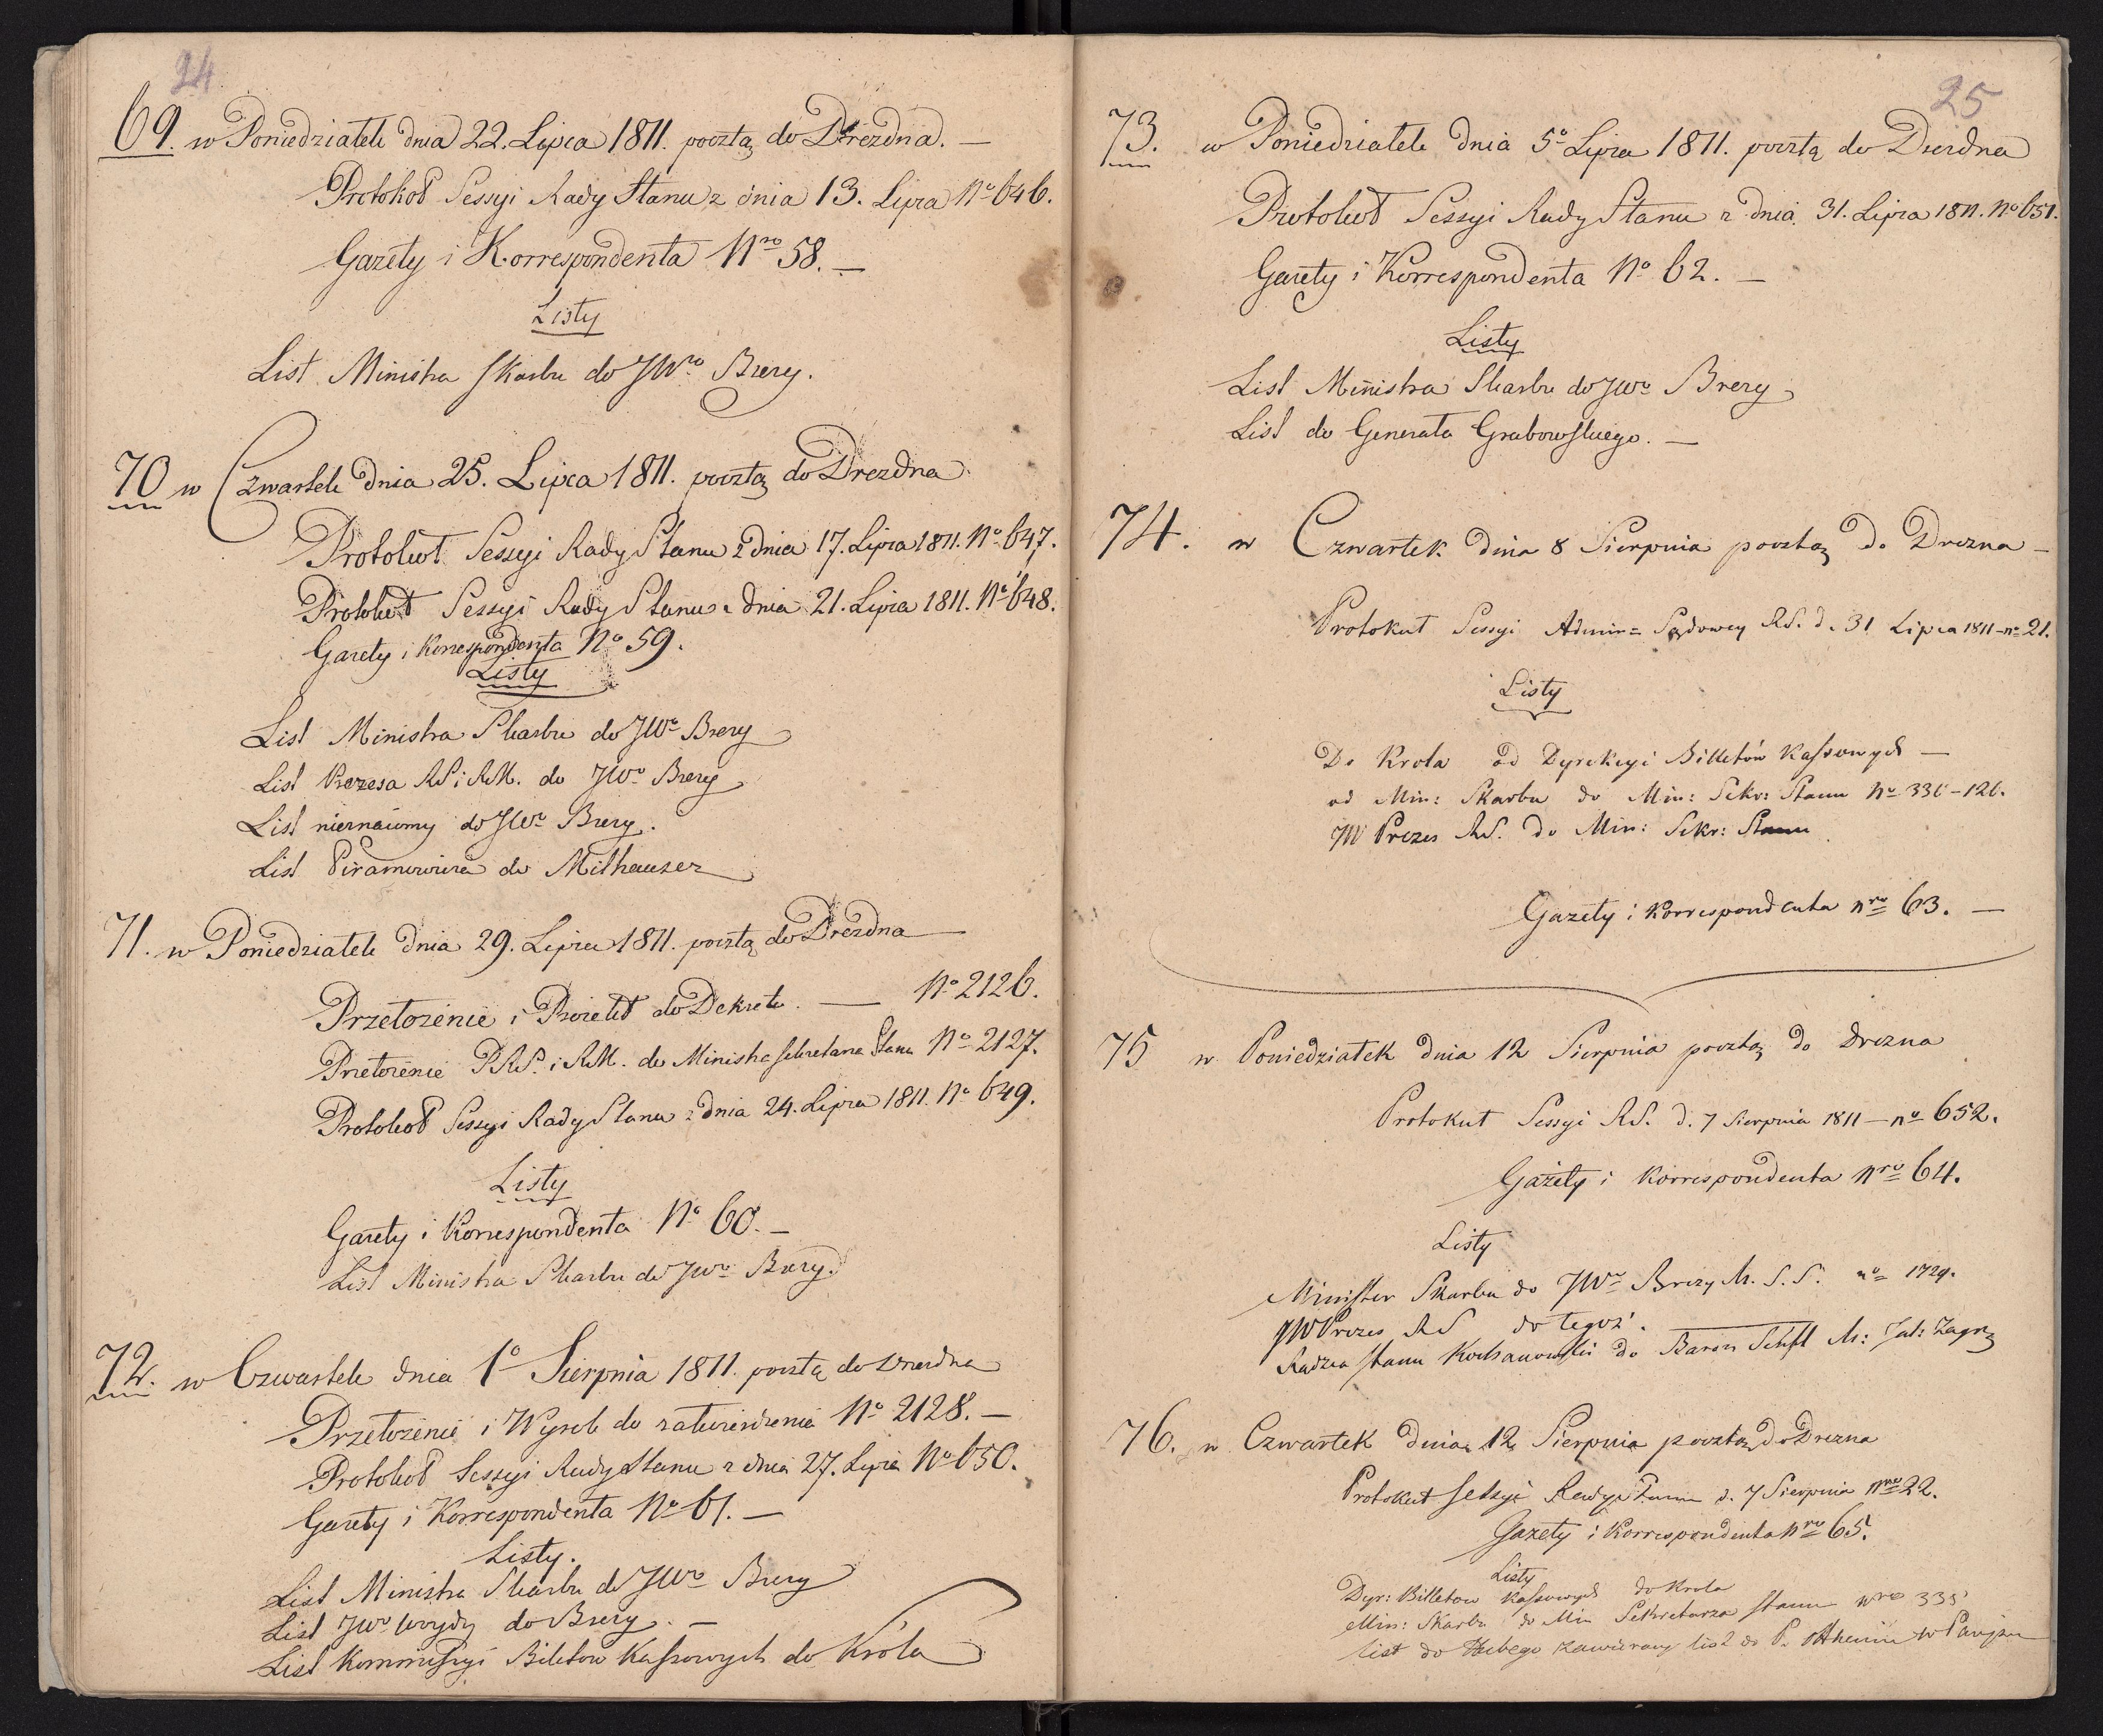 24
69. w Poniedziałek dnia 22. Lipca 1811. pocztą do Drezdna. —
Protokoł Sessyi Rady Stanu z dnia 13. Lipca No 646.
Gazety i Korrespondenta Nro 58. —
Listy
List Ministra Skarbu do JWro Brezy.
70 w Czwartek dnia 25. Lipca 1811. pocztą do Drezdna
Protokoł Sessyi Rady Stanu z dnia 17. Lipca 1811. No 647.
Protokoł Sessyi Rady Stanu z dnia 21. Lipca 1811. No 648.
Gazety i Korrespondenta No 59.
Listy
List Ministra Skarbu do JWo Brezy
List Prezesa RS i RM. do JWo Brezy
List nieznaiomy do JWo Brezy.
List Piramowicza do Milhauser
71. w Poniedziałek dnia 29. Lipca 1811. pocztą do Drezdna —
Przełożenie i Proiekt do Dekretu. — No 2126.
Przełożenie PRS. i RM. do Ministra Sekretarza Stanu No 2127.
Protokoł Sessyi Rady Stanu z dnia 24. Lipca 1811. No 649.
Listy
Gazety i Korrespondenta No 60. —
List Ministra Skarbu do JWo Brezy.
72. w Czwartek dnia 1o Sierpnia 1811. pocztą do Drezdna
Przełożenie i Wyrok do zatwierdzenia No 2128. —
Protokoł Sessyi Rady Stanu z dnia 27. Lipca No 650.
Gazety i Korrespondenta No 61. —
Listy.
List Ministra Skarbu do JWo Brezy
List JWo do Brezy. —
List Kommissyi Biletow Kassowych do Króla
25
73. w Poniedziałek dnia 5o Lipca 1811. pocztą do Drezdna
Protokoł Sessyi Rady Stanu z dnia 31. Lipca 1811. No 651.
Gazety i Korrespondenta No 62. —
Listy
List Ministra Skarbu do JWo Brezy
List do Generała Grabowskiego. —
74. w Czwartek dnia 8 Sierpnia pocztą do Drezna —
Protokuł Sessyi Admin= Sądowey RS. d. 31 Lipca 1811 — no 21.
Listy
Do Krola od Dyrekcyi Billetów Kassowych —
od Min: Skarbu do Min: Sekr: Stanu No 336-126.
JW Prezes RS. do Min: Sekr: Stanu
Gazety i Korrespondenta nro 63. —
75 w Poniedziałek dnia 12 Sierpnia pocztą do Drezna
Protokuł Sessyi RS. d. 7 Sierpnia 1811 — no 652.
Gazety i Korrespondenta nro 64.
Listy
Minister Skarbu do JWo Brezy M. S. S. no 1729.
JW Prezes RS do tegoż.
Radzca Stanu Kochanowski do Baron M: Zagr
76. w Czwartek dnia 12 Sierpnia pocztą do Drezna
Protokuł Sessyi Rady Stanu d. 7 Sierpnia nro 22.
Gazety i Korrespondenta nro 65.
Listy
Dyr: Billetow Kassowych do Krola
Min: Skarbu do Min Sekretarza Stanu nro 335
list do zawieraiący list do P. w Paryżu